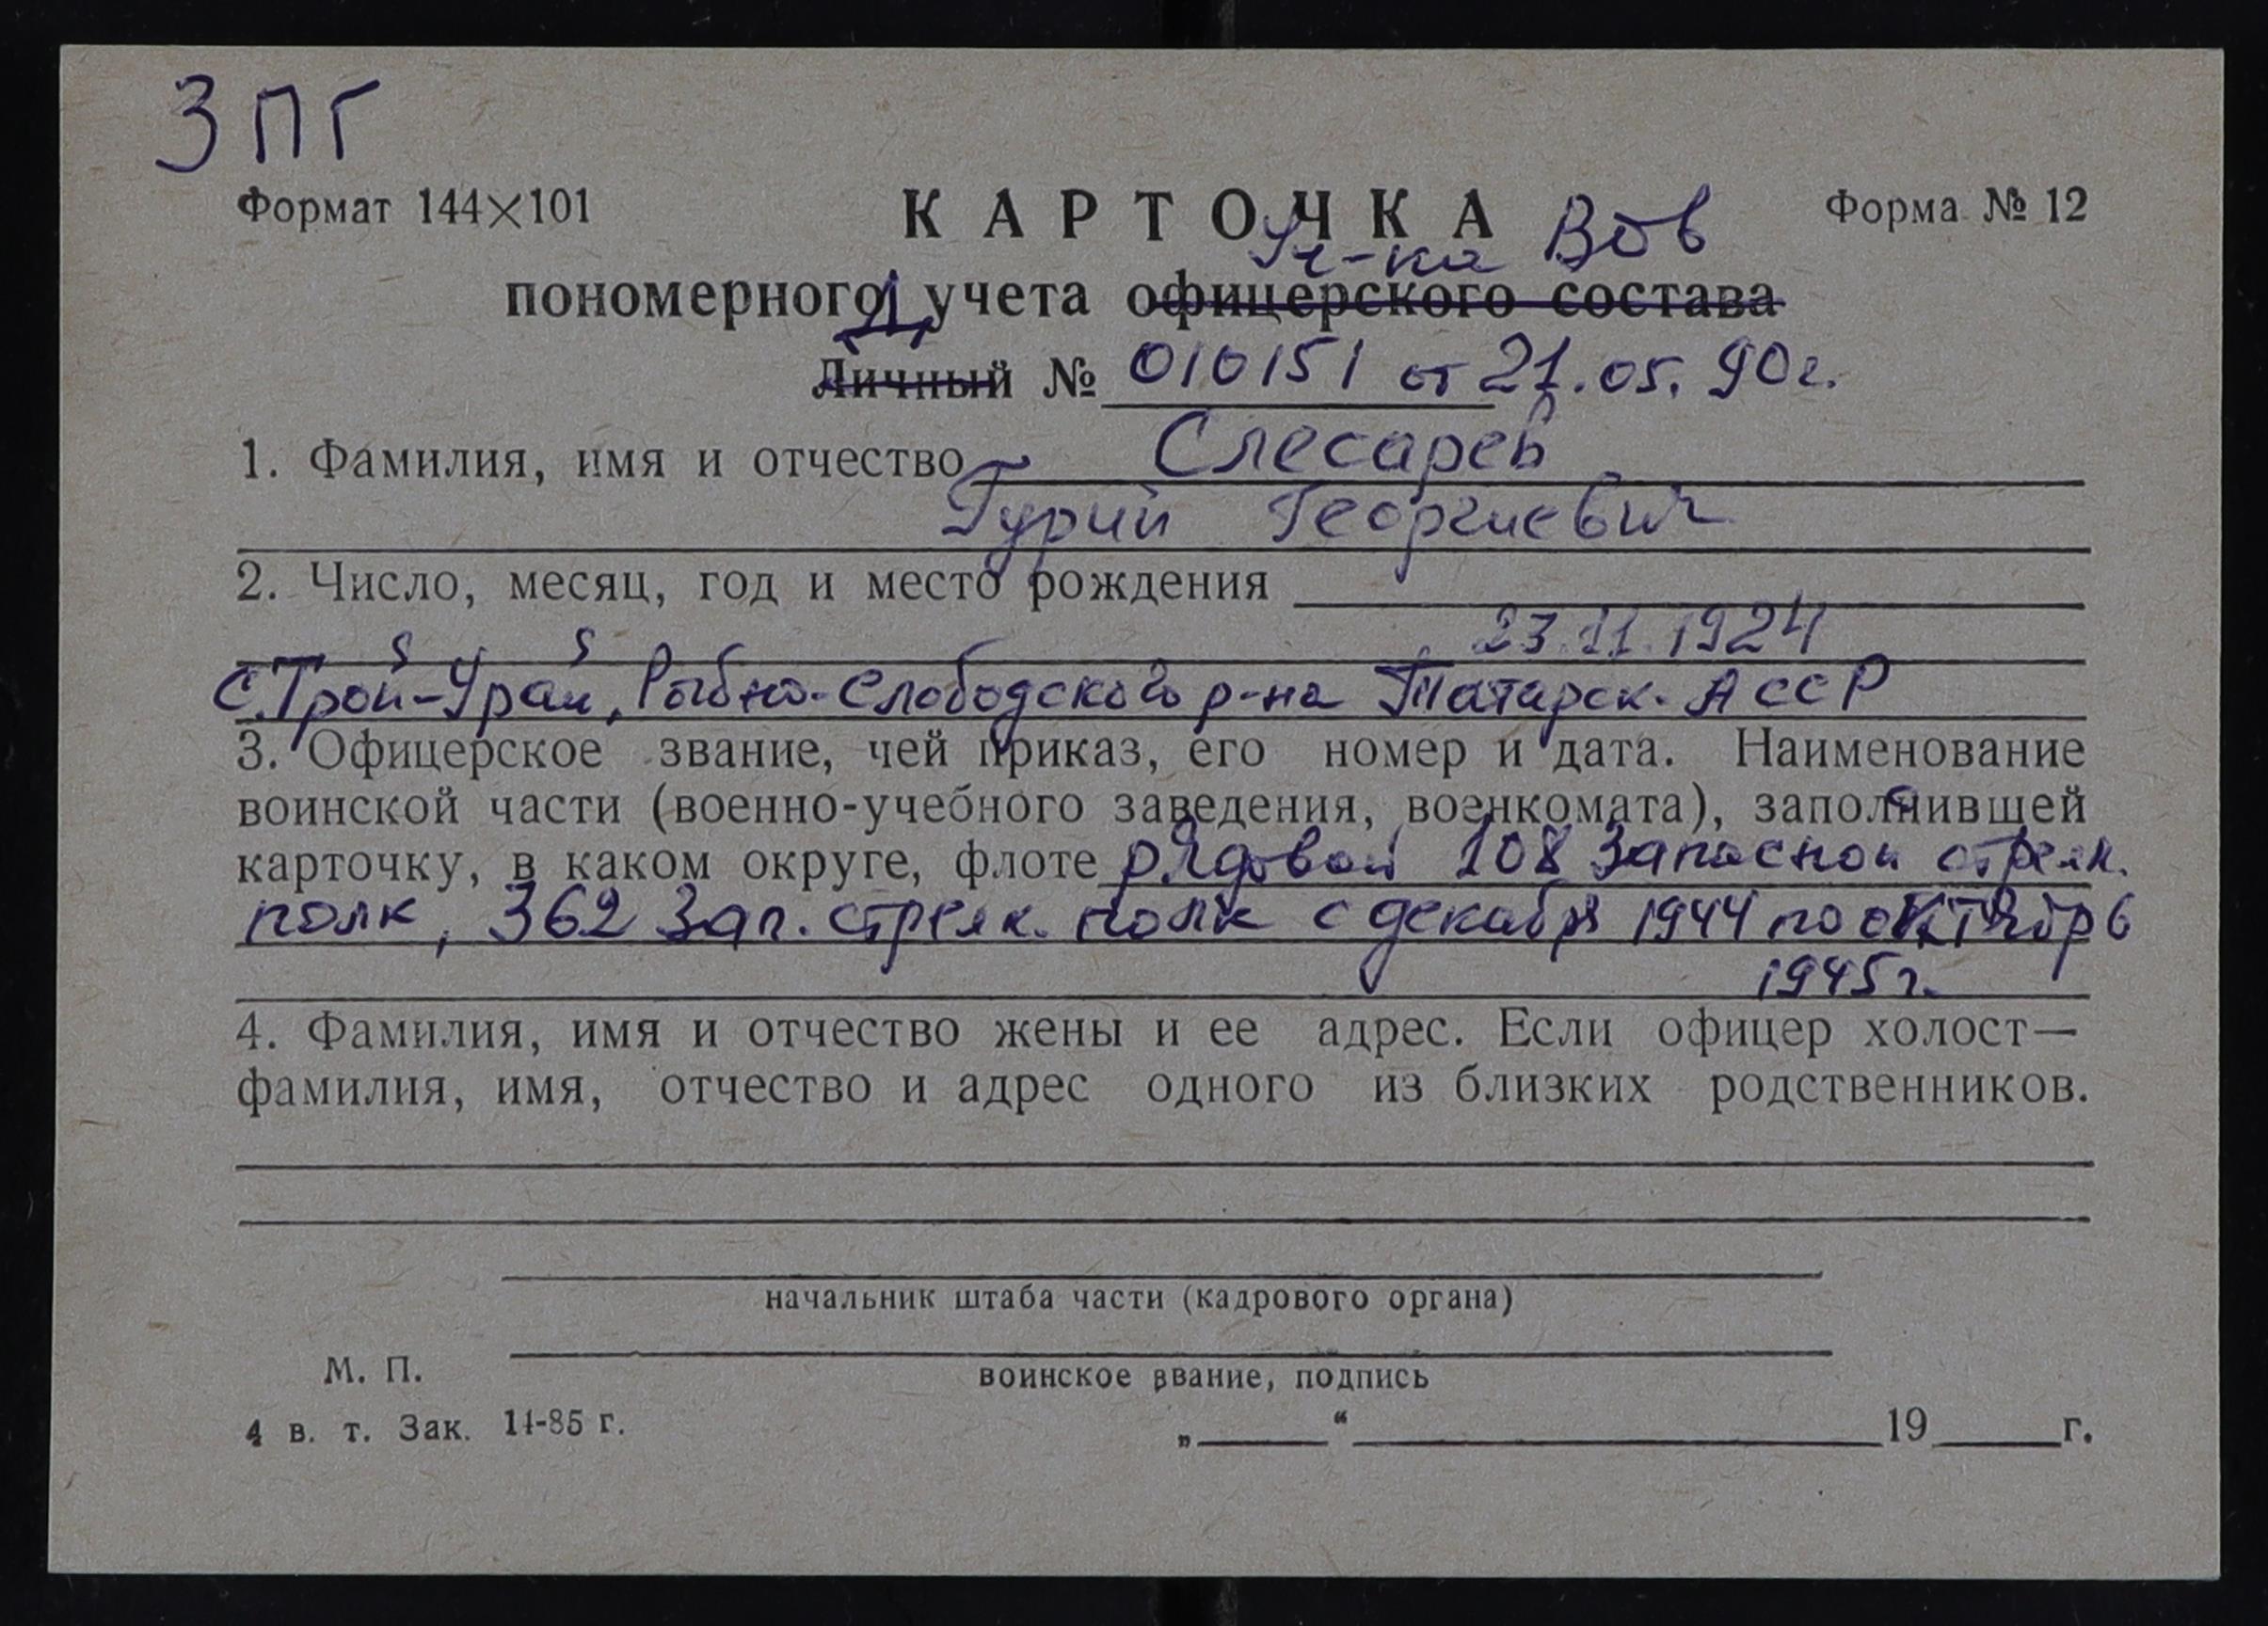 ЗПГ
Формат 144×101 КАРТОЧКА Форма № 12
Уч-ка Вов
пономерного учета офицерского состава
Личный № 010151 от 21.05.90г.
1. Фамилия, имя и отчество Слесарев
Гурий Георгиевич
2. Число, месяц, год и место рождения
23.11.1924
с. Трой-Урай, Рыбно-Слободского р-на Татарск. АССР
3. Офицерское звание, чей приказ, его номер и дата. Наименование
воинской части (военно-учебного заведения, военкомата), заполнившей
карточку, в каком округе, флоте рядовой 108 Запасной стрелк.
полк, 362 Зап. стрелк. полк с декабря 1944 по октябрь
1945г.
4. Фамилия, имя и отчество жены и ее адрес. Если офицер холост—
фамилия, имя, отчество и адрес одного из близких родственников.
начальник штаба части (кадрового органа)
М. П.
воинское звание, подпись
4 в. т. Зак. 14-85 г. „ “ 19 г.